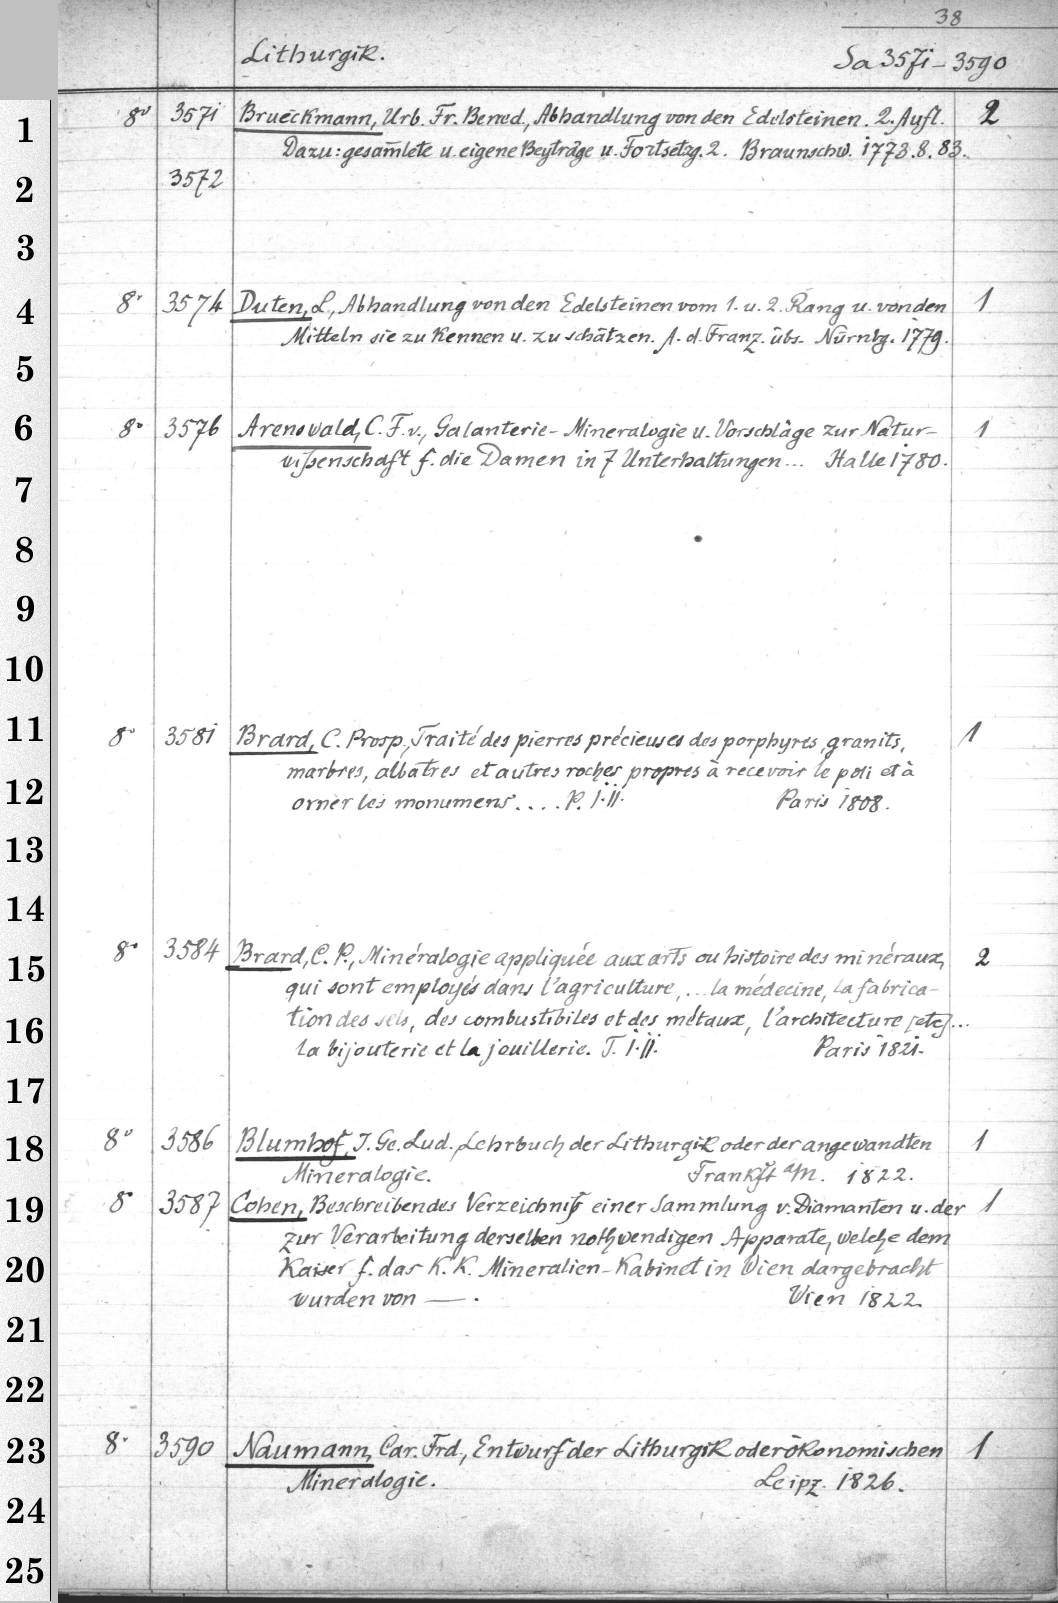 38
Lithurgik. Sa 3571-3590
1 8° 3571 Brueckmann, Urb. Fr. Bened., Abhandlung von den Edelsteinen. 2. Aufl. 2
Dazu: gesam̄lete u. eigene Beyträge u. Fortsetzg. 2. Braunschw. 1773. 8. 83.
2 3572
3
4 8° 3574 Duten, L., Abhandlung von den Edelsteinen vom 1. u. 2. Rang u. von den 1
Mitteln sie zu kennen u. zu schätzen. A. d. Franz. übs. Nürnbg. 1779.
5
6 8° 3576 Arenswald, C. F. v., Galanterie-Mineralogie u. Vorschläge zur Natur- 1
wißenschaft f. die Damen in 7 Unterhaltungen... Halle 1780.
7
8
9
10
11 8° 3581 Brard, C. Prosp., Traité des pierres précieuses des porphyres, granits, 1
marbres, albâtres et autres roches propres à recevoir le poli et à
12 orner les monumens.... P. I. II. Paris 1808.
13
14
15 8° 3584 Brard, C. P., Minéralogie appliquée aux arts ou histoire des minéraux, 2
qui sont employés dans l'agriculture,... la médecine, la fabrica-
16 tion des sels, des combustibiles et des métaux, l'architecture [etc]...
la bijouterie et la jouillerie. T. I. II. Paris 1821.
17
18 8° 3586 Blumhof, J. Ge. Lud., Lehrbuch der Lithurgik oder der angewandten 1
Mineralogie. Frankft a/m. 1822.
19 8° 3587 Cohen, Beschreibendes Verzeichniß einer Sammlung v. Diamanten u. der 1
zur Verarbeitung derselben nothwendigen Apparate, welche dem
20 Kaiser f. das K. K. Mineralien-Kabinet in Wien dargebracht
wurden von —. Wien 1822.
21
22
23 8° 3590 Naumann, Car. Frd., Entwurf der Lithurgik oder ökonomischen 1
Mineralogie. Leipz. 1826.
24
25